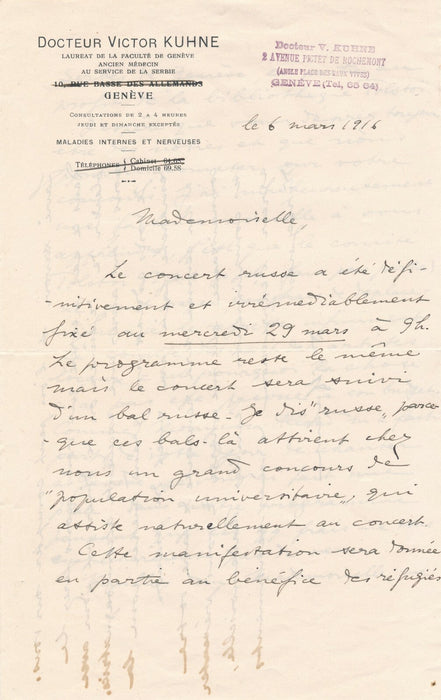 DOCTEUR VICTOR KUHNE
LAUREAT DE LA FACULTÉ DE GENÈVE
ANCIEN MÉDECIN
AU SERVICE DE LA SERBIE
10, RUE BASSE DES ALLEMANDS
GENÈVE
CONSULTATIONS DE 2 A 4 HEURES
JEUDI ET DIMANCHE EXCEPTÉS
MALADIES INTERNES ET NERVEUSES
TÉLÉPHONES Cabinet
Domicile 69.58
Docteur V. KUHNE
2 AVENUE PICTET DE ROCHEMONT
(ANGLE PLACE DES EAUX VIVES)
GENÈVE (Tel, 65 64)
le 6 mars 1916
Mademoiselle,
Le concert russe a été défi-
-nitivement et irrémédiablement
fixé au mercredi 29 mars à 9h.
Le programme reste le même
mais le concert sera suivi
d'un bal russe - Je dis "russe" parce
-que ces bals-là attirent chez
nous un grand concours de
"population universitaire" qui
assiste naturellement au concert.
Cette manifestation sera donnée
en partie au bénéfice des réfugiés